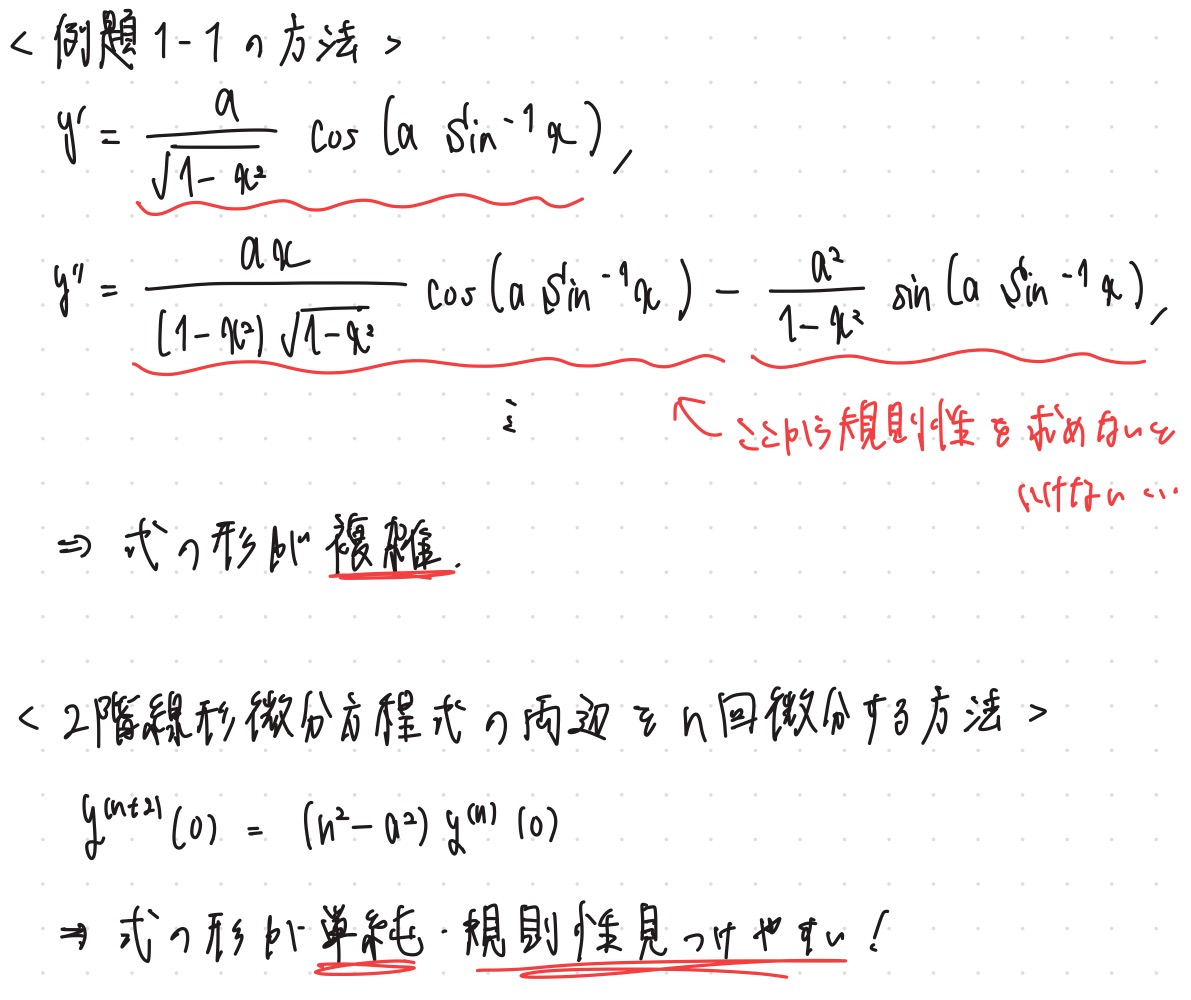 < 例題1-1の方法 >
y' = \frac{a}{\sqrt{1-x²}} cos (a Sin⁻¹x),
y'' = \frac{ax}{(1-x²)\sqrt{1-x²}} cos(a Sin⁻¹x) - \frac{a²}{1-x²} sin (a Sin⁻¹x),
⋮
ここから規則性を求めないと
いけない…
⇒ 式の形が複雑.
< 2階線形微分方程式の両辺をn回微分する方法 >
y⁽ⁿ⁺²⁾(0) = (n²-a²) y⁽ⁿ⁾(0)
⇒ 式の形が単純・規則性見つけやすい!